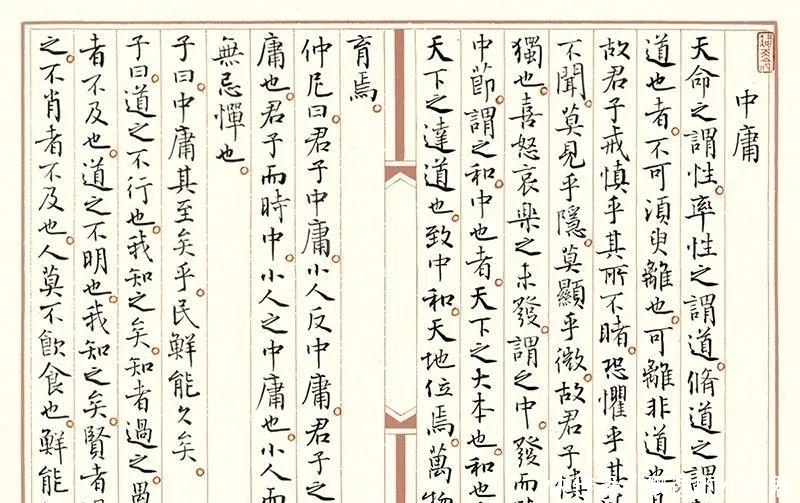 中庸
天命之謂性。率性之謂道。脩道之謂
道也者。不可須臾離也。可離非道也。
故君子戒慎乎其所不睹。恐懼乎其
不聞。莫見乎隱。莫顯乎微。故君子慎
獨也。喜怒哀樂之未發。謂之中。發而
中節。謂之和。中也者。天下之大本也。和也
天下之達道也。致中和。天地位焉。萬物
育焉。
仲尼曰。君子中庸。小人反中庸。君子之
庸也。君子而時中。小人之中庸也。小人而
無忌憚也。
子曰。中庸其至矣乎。民鮮能久矣。
子曰。道之不行也。我知之矣。知者過之。愚
者不及也。道之不明也。我知之矣。賢者
之。不肖者不及也。人莫不飲食也。鮮能